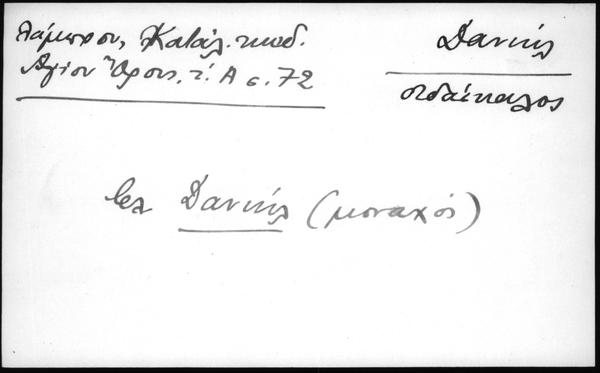 Λάμπρου, Κατάλ. κωδ.
Ἁγίου Ὄρους, τ. Α σ. 72
Δανιήλ
διδάσκαλος
βλ Δανιήλ (μοναχός)